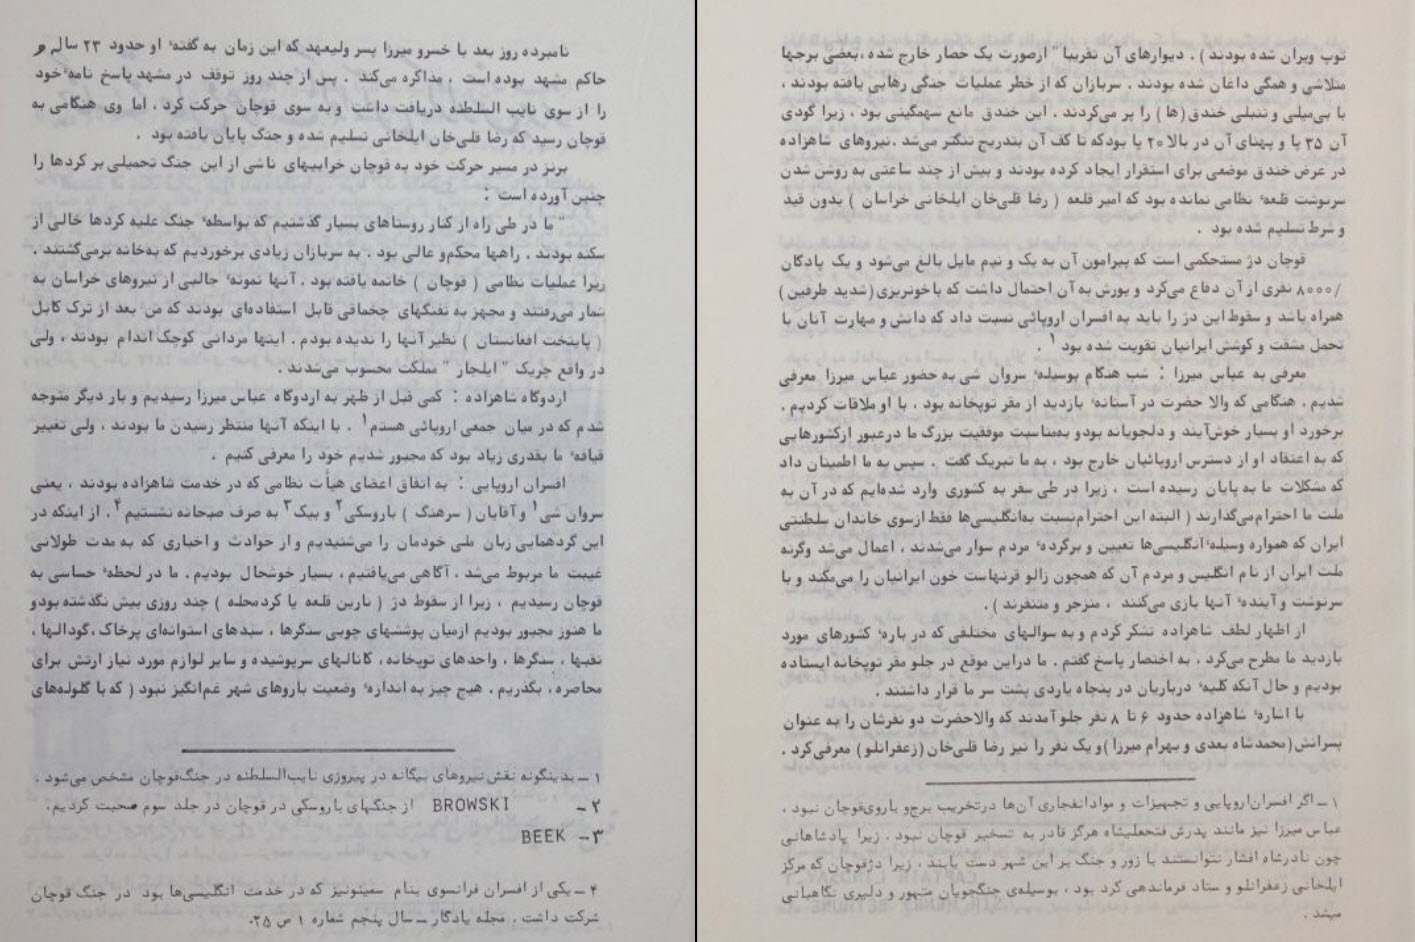 نامبرده روز بعد با خسرو میرزا پسر ولیعهد که این زمان به گفتهٔ او حدود ۲۳ سال و
حاکم مشهد بوده است ، مذاکره می‌کند . پس از چند روز توقف در مشهد پاسخ نامهٔ خود
را از سوی نایب السلطنه دریافت داشت و به سوی قوچان حرکت کرد . اما وی هنگامی به
قوچان رسید که رضا قلی‌خان ایلخانی تسلیم شده و جنگ پایان یافته بود .
برنز در مسیر حرکت خود به قوچان خرابیهای ناشی از این جنگ تحمیلی بر کردها را
چنین آورده است :
" ما در طی راه از کنار روستاهای بسیار گذشتیم که بواسطهٔ جنگ علیه کردها خالی از
سکنه بودند . راهها محکم‌و عالی بود . به سربازان زیادی برخوردیم که به‌خانه برمی‌گشتند .
زیرا عملیات نظامی ( قوچان ) خاتمه یافته بود . آنها نمونهٔ جالبی از نیروهای خراسان به
شمار می‌رفتند و مجهز به تفنگهای چخماقی قابل استفاده‌ای بودند که من بعد از ترک کابل
( پایتخت افغانستان ) نظیر آنها را ندیده بودم . اینها مردانی کوچک اندام بودند ، ولی
در واقع چریک " ایلجار " مملکت محسوب می‌شدند .
اردوگاه شاهزاده : کمی قبل از ظهر به اردوگاه عباس میرزا رسیدیم و بار دیگر متوجه
شدم که در میان جمعی اروپائی هستم۱ . با اینکه آنها منتظر رسیدن ما بودند ، ولی تغییر
قیافهٔ ما بقدری زیاد بود که مجبور شدیم خود را معرفی کنیم .
افسران اروپایی : به اتفاق اعضای هیأت نظامی که در خدمت شاهزاده بودند ، یعنی
سروان شی۱ و آقایان ( سرهنگ ) باروسکی۲ و بیک۳ به صرف صبحانه نشستیم۴ . از اینکه در
این گردهمایی زبان ملی خودمان را می‌شنیدیم و از حوادث و اخباری که به مدت طولانی
غیبت ما مربوط می‌شد ، آگاهی می‌یافتیم ، بسیار خوشحال بودیم . ما در لحظهٔ حساسی به
قوچان رسیدیم ، زیرا از سقوط دژ ( نارین قلعه یا کردمحله ) چند روزی بیش نگذشته بودو
ما هنوز مجبور بودیم ازمیان پوششهای چوبی سنگرها ، سبدهای استوانه‌ای پرخاک ،گودالها ،
نقبها ، سنگرها ، واحدهای توپخانه ، کانالهای سرپوشیده و سایر لوازم مورد نیاز ارتش برای
محاصره ، بگذریم . هیچ چیز به اندازهٔ وضعیت باروهای شهر غم‌انگیز نبود ( که با گلوله‌های
۱ – بدینگونه نقش نیروهای بیگانه در پیروزی نایب‌السلطنه در جنگ‌قوچان مشخص می‌شود .
۲ – BROWSKI از جنگهای باروسکی در قوچان در جلد سوم صحبت کردیم.
۳ – BEEK
۴ – یکی از افسران فرانسوی بنام سمینونیز که در خدمت انگلیسی‌ها بود در جنگ قوچان
شرکت داشت . مجله یادگار – سال پنجم شماره ۱ ص ۲۵.
توپ ویران شده بودند ) . دیوارهای آن تقریبا" ازصورت یک حصار خارج شده ،بعضی برجها
متلاشی و همگی داغان شده بودند . سربازان که از خطر عملیات جنگی رهایی یافته بودند ،
با بی‌میلی و تنبلی خندق (ها ) را پر می‌کردند . این خندق مانع سهمگینی بود ، زیرا گودی
آن ۳۵ پا و پهنای آن در بالا ۲۰ پا بودکه تا کف آن بتدریج تنگتر می‌شد .نیروهای شاهزاده
در عرض خندق موضعی برای استقرار ایجاد کرده بودند و بیش از چند ساعتی به روشن شدن
سرنوشت قلعهٔ نظامی نمانده بود که امیر قلعه ( رضا قلی‌خان ایلخانی خراسان ) بدون قید
و شرط تسلیم شده بود .
قوچان دژ مستحکمی است که پیرامون آن به یک و نیم مایل بالغ می‌شود و یک پادگان
/۸۰۰۰ نفری از آن دفاع می‌کرد و یورش به آن احتمال داشت که باخونریزی (شدید طرفین)
همراه باشد و سقوط این دژ را باید به افسران اروپائی نسبت داد که دانش و مهارت آنان با
تحمل مشقت و کوشش ایرانیان تقویت شده بود ۱ .
معرفی به عباس میرزا : شب هنگام بوسیلهٔ سروان شی به حضور عباس میرزا معرفی
شدیم . هنگامی که والا حضرت در آستانهٔ بازدید از مقر توپخانه بود ، با او ملاقات کردیم .
برخورد او بسیار خوش‌آیند و دلجویانه بودو به‌مناسبت موفقیت بزرگ ما درعبور ازکشورهایی
که به اعتقاد او از دسترس اروپائیان خارج بود ، به ما تبریک گفت . سپس به ما اطمینان داد
که مشکلات ما به پایان رسیده است ، زیرا در طی سفر به کشوری وارد شده‌ایم که در آن به
ملت ما احترام‌می‌گذارند ( البته این احترام‌نسبت به‌انگلیسی‌ها فقط ازسوی خاندان سلطنتی
ایران که همواره وسیلهٔ انگلیسی‌ها تعیین و برگردهٔ مردم سوار می‌شدند ، اعمال می‌شد وگرنه
ملت ایران از نام انگلیس و مردم آن که همچون زالو قرنهاست خون ایرانیان را می‌مکند و با
سرنوشت و آیندهٔ آنها بازی می‌کنند ، منزجر و متنفرند ) .
از اظهار لطف شاهزاده تشکر کردم و به سوالهای مختلفی که در بارهٔ کشورهای مورد
بازدید ما مطرح می‌کرد ، به اختصار پاسخ گفتم . ما دراین موقع در جلو مقر توپخانه ایستاده
بودیم و حال آنکه کلیهٔ درباریان در پنجاه یاردی پشت سر ما قرار داشتند .
با اشارهٔ شاهزاده حدود ۶ تا ۸ نفر جلو آمدند که والاحضرت دو نفرشان را به عنوان
پسرانش (محمدشاه بعدی و بهرام میرزا )و یک نفر را نیز رضا قلی‌خان (زعفرانلو) معرفی‌کرد .
۱ – اگر افسران‌اروپایی و تجهیزات و موادانفجاری آن‌ها درتخریب برج‌و باروی‌قوچان نبود ،
عباس میرزا نیز مانند پدرش فتحعلیشاه هرگز قادر به تسخیر قوچان نبود . زیرا پادشاهانی
چون نادرشاه افشار نتوانستند با زور و جنگ بر این شهر دست یابند ، زیرا دژقوچان که مرکز
ایلخانی زعفرانلو و ستاد فرماندهی کرد بود ، بوسیله‌ی جنگجویان مشهور و دلیری نگاهبانی
میشد .